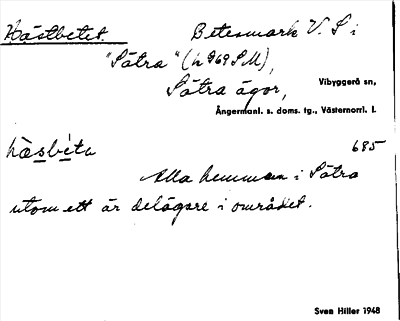 Hästbetet. Betesmark V. S i
"Sätra" (h 869 S M),
Sätra ägor, Vibyggerå sn,
Ångermanl. s. doms. tg., Västernorrl. l.
hàsbéta 685
Alla hemman i Sätra
utom ett är delägare i området.
Sven Hiller 1948